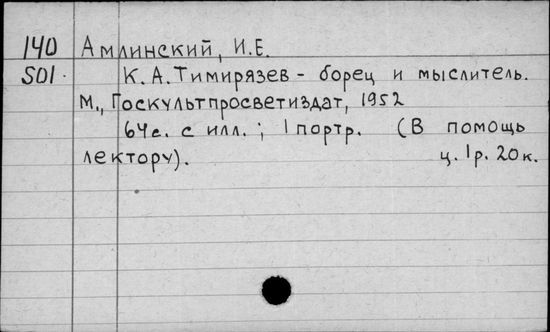 140 Амлинский, И.Е.
S01. К.А.Тимирязев - борец и мыслитель.
М., Госкультпросветиздат, 1952
64с. с илл. ; 1 портр. (В помощь
лектору). ц. 1р. 20к.